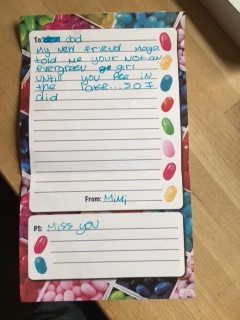 To: dad
My new friend Maya
told me your not an
evergreen girl
until you pee in
the lake...so I
did
From: Mimi
PS: Miss you